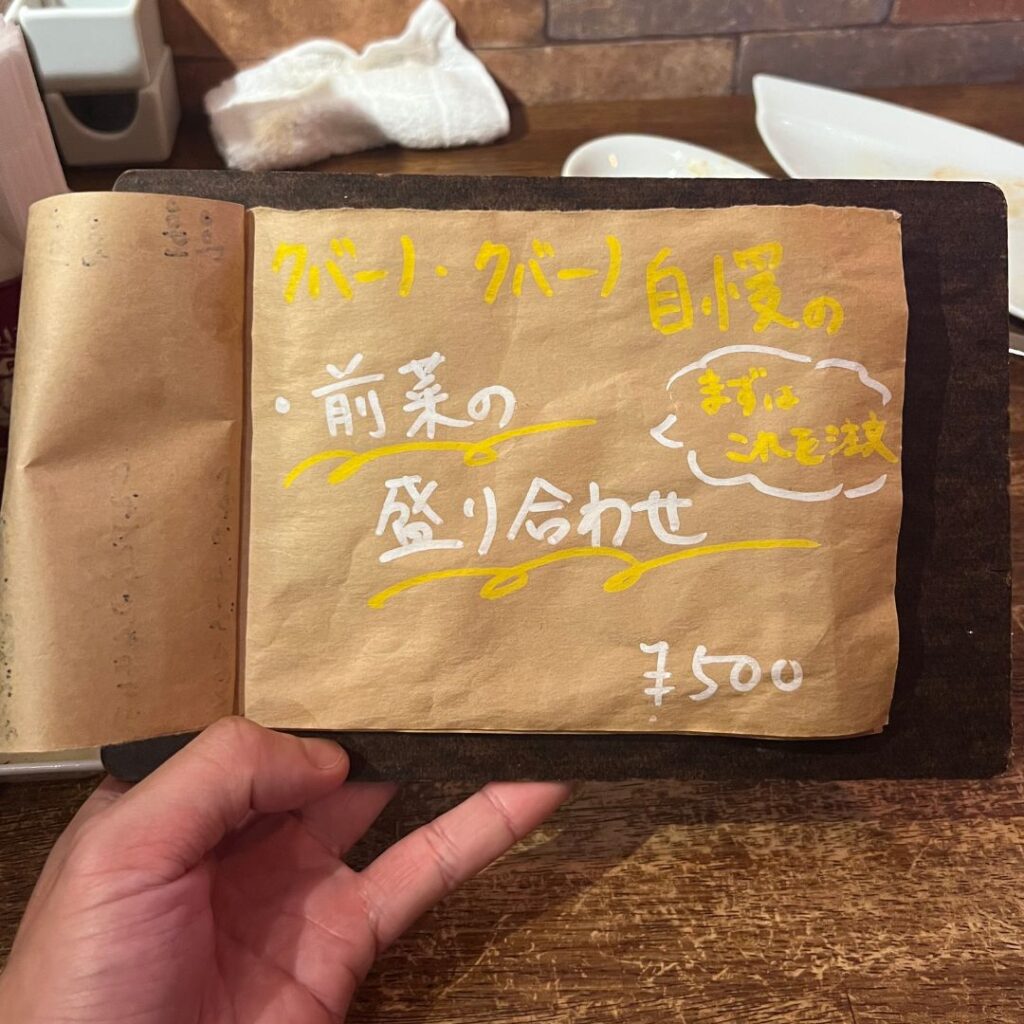 クバーノ・クバーノ 自慢の
・前菜の
盛り合わせ
まずは
これを注文
¥500